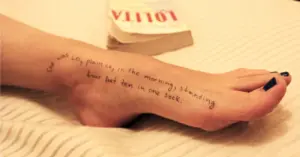 LOLITA
She was Lo, plain Lo, in the morning, standing
four feet ten in one sock.